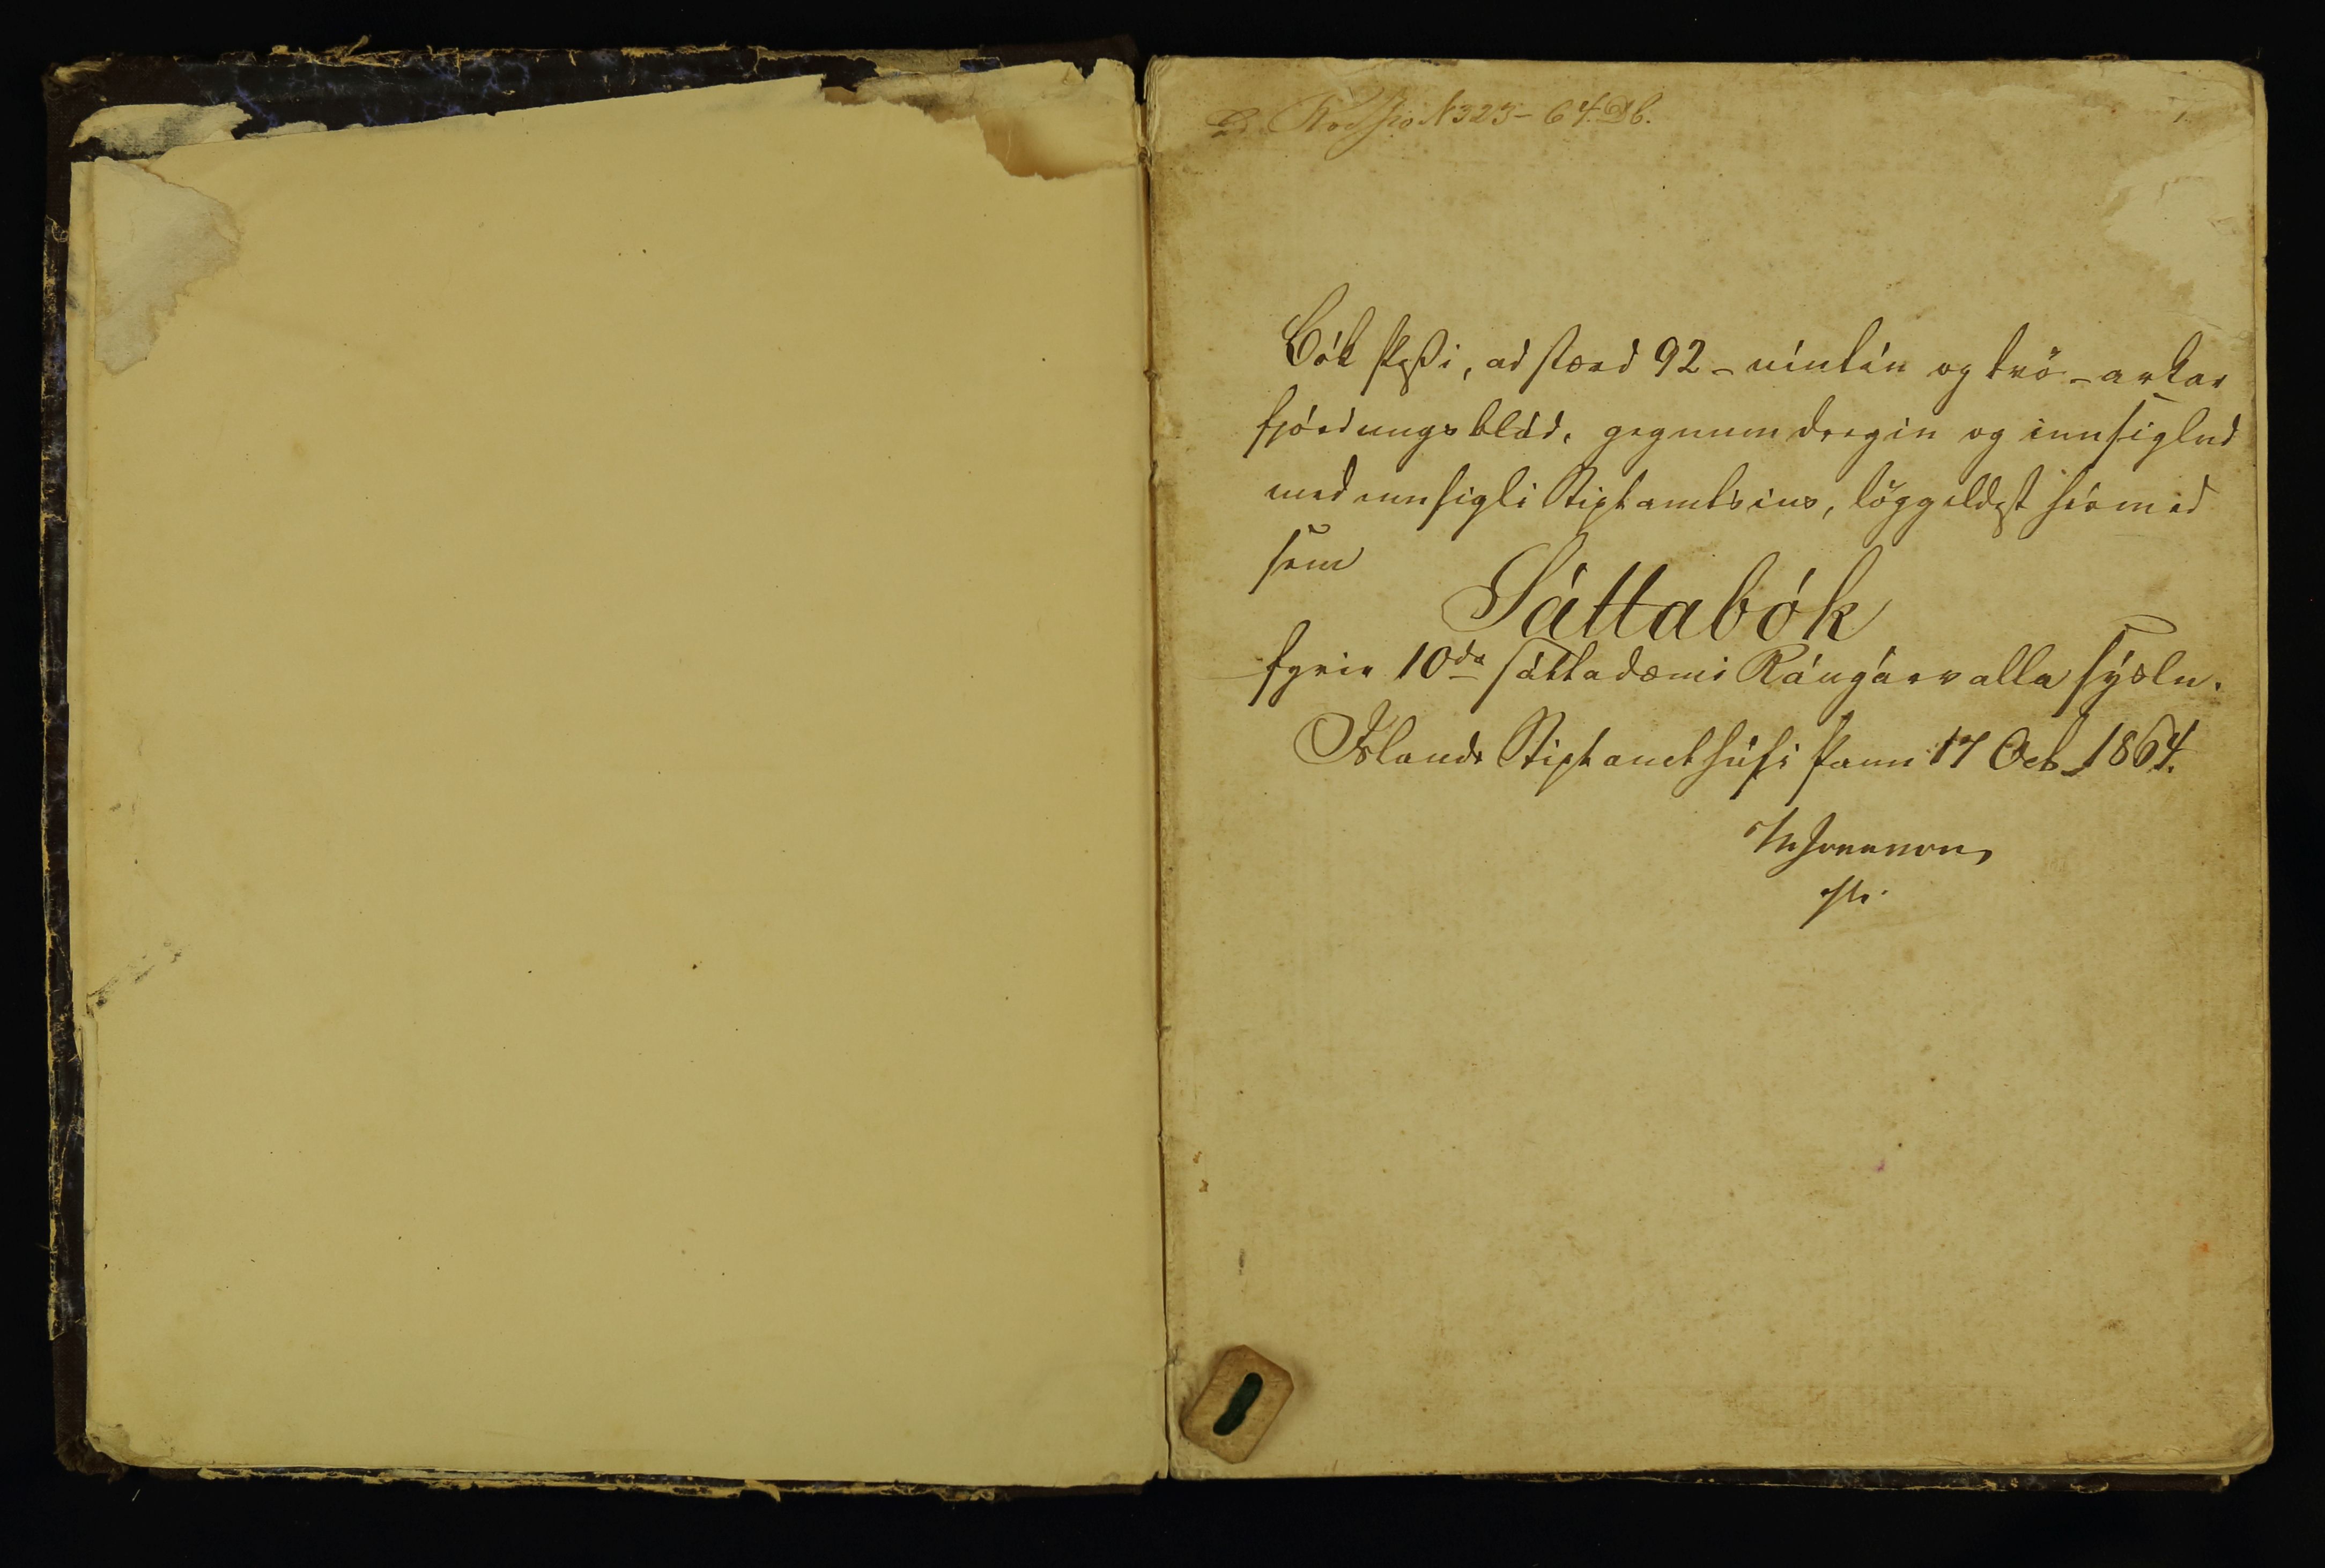 N 323-64. Db.
1.
Bók þeßi, ad stærd 92 - níutíu og tvö - arkar
fjórdungsblöd, gegnumdregin og innsiglud
med innsigli Stiptamtsins, löggildist hérmed
sem
Sáttabók
fyrir 10da sáttadæmi Rángárvalla sýslu.
Islands Stiptamthúsi þann 17 Oct 1864.